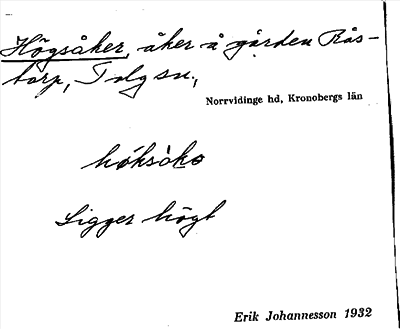 Högsåker, åker å gården Rås-
torp, Tolg sn,
Norrvidinge hd, Kronobergs län
hǿksåkɘ
Ligger högt
Erik Johannesson 1932